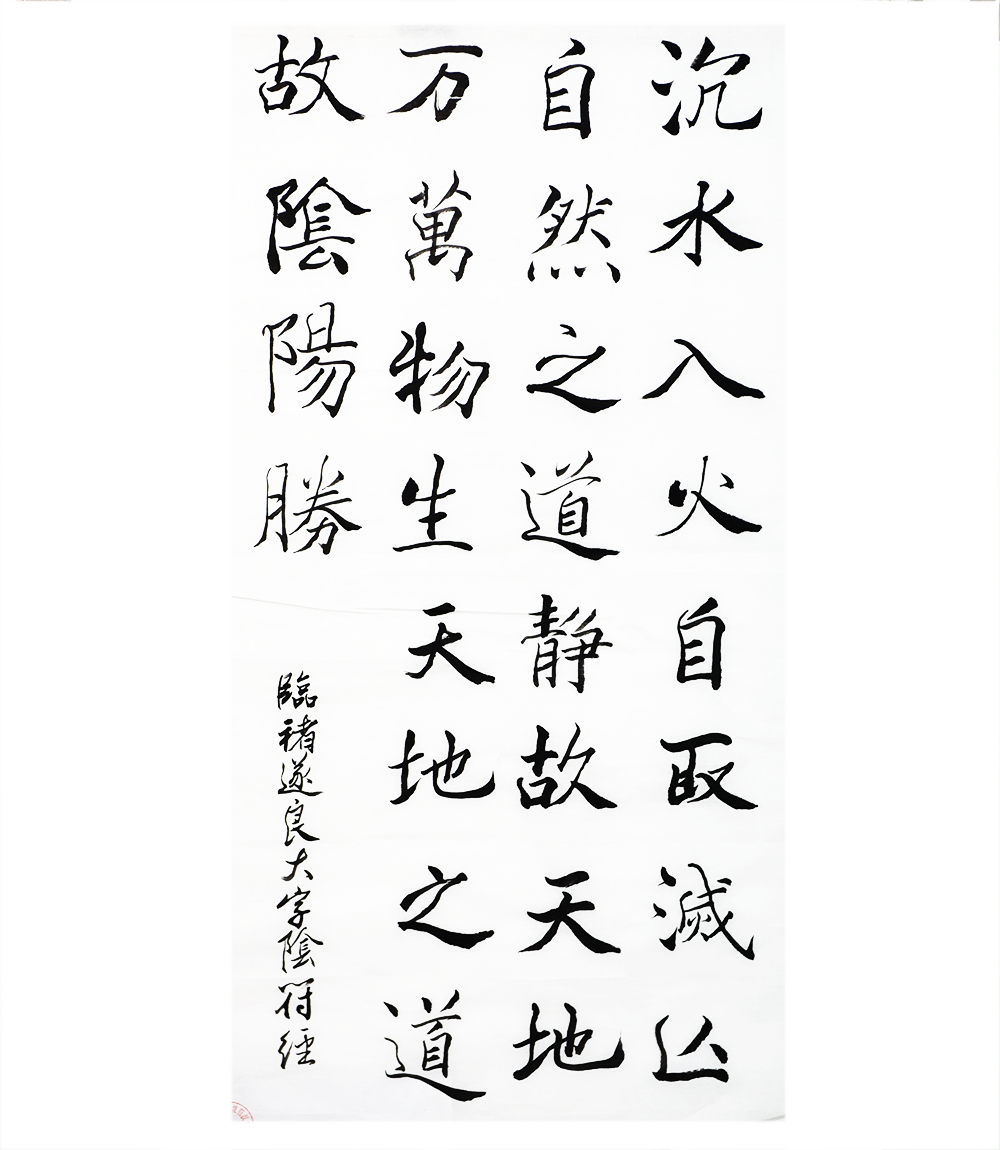 沉水入火自取滅亾
自然之道靜故天地
万萬物生天地之道
故陰陽勝
臨褚遂良大字陰符經